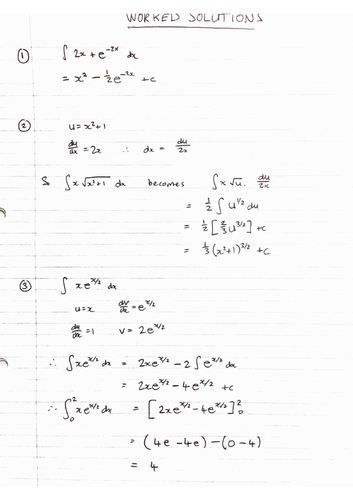 WORKED SOLUTIONS
① ∫ 2x + e^{-2x} dx
= x² - ½e^{-2x} + c
② u = x²+1
du/dx = 2x ∴ dx = du/2x
So ∫x√(x²+1) dx becomes ∫ x√u. du/2x
= ½ ∫ u^{1/2} du
= ½ [⅔u^{3/2}] + c
= ⅓ (x²+1)^{3/2} + c
③ ∫ xe^{x/2} dx
u = x dv/dx = e^{x/2}
du/dx = 1 v = 2e^{x/2}
∴ ∫xe^{x/2} dx = 2xe^{x/2} - 2∫e^{x/2} dx
= 2xe^{x/2} - 4e^{x/2} + c
∴ ∫₀² xe^{x/2} dx = [2xe^{x/2} - 4e^{x/2}]₀²
= (4e - 4e) - (0 - 4)
= 4